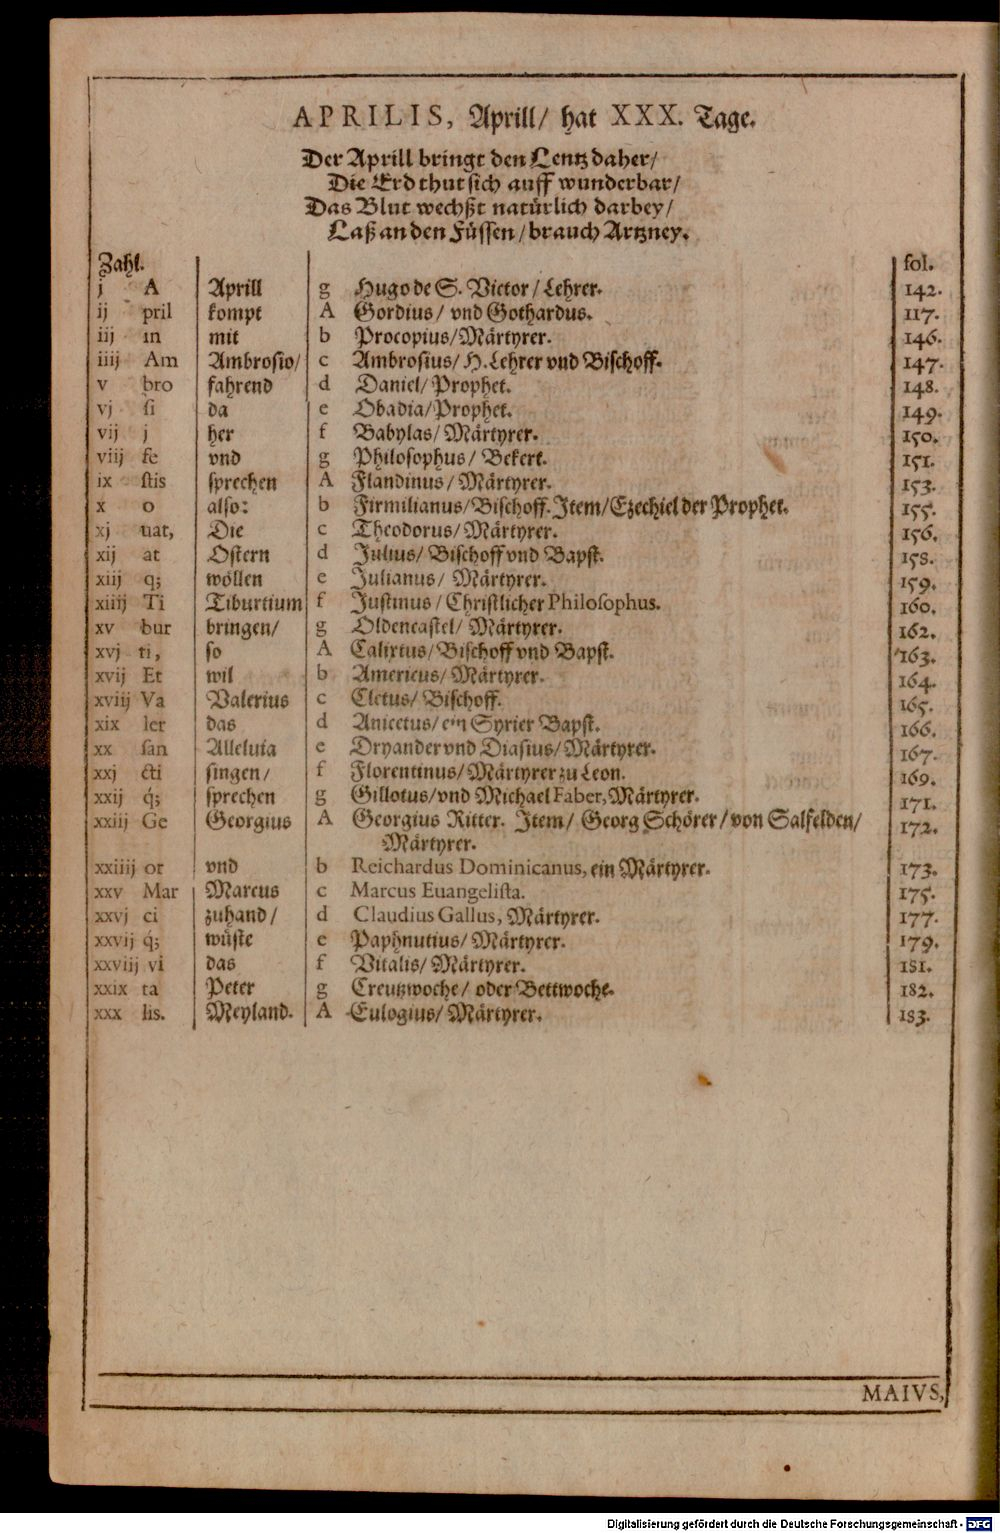 APRILIS, Aprill/ hat XXX. Tage.
Der Aprill bringt den Lentz daher/
Die Erd thut sich auff wunderbar/
Das Blut wechßt natürlich darbey/
Laß an den Füssen/ brauch Artzney.
Zahl. fol.
j A Aprill g Hugo de S. Victor/ Lehrer. 142.
ij pril kompt A Gordius/ vnd Gothardus. 117.
iij in mit b Procopius/ Märtyrer. 146.
iiij Am Ambrosio/ c Ambrosius/ H. Lehrer vnd Bischoff. 147.
v bro fahrend d Daniel/ Prophet. 148.
vj si da e Obadia/ Prophet. 149.
vij j her f Babylas/ Märtyrer. 150.
viij fe vnd g Philosophus/ Bekert. 151.
ix stis sprechen A Flandinus/ Märtyrer. 153.
x o also: b Firmilianus/ Bischoff. Item/ Ezechiel der Prophet. 155.
xj uat, Die c Theodorus/ Märtyrer. 156.
xij at Ostern d Julius/ Bischoff vnd Bapst. 158.
xiij q; wöllen e Julianus/ Märtyrer. 159.
xiiij Ti Tiburtium f Justinus/ Christlicher Philosophus. 160.
xv bur bringen/ g Oldencastel/ Märtyrer. 162.
xvj ti, so A Calixtus/ Bischoff vnd Bapst. 163.
xvij Et wil b Americus/ Märtyrer. 164.
xviij Va Valerius c Cletus/ Bischoff. 165.
xix ler das d Anicetus/ ein Syrier Bapst. 166.
xx san Alleluia e Dryander vnd Diasius/ Märtyrer. 167.
xxj cti singen/ f Florentinus/ Märtyrer zu Leon. 169.
xxij q́; sprechen g Gillotus/ vnd Michael Faber, Märtyrer. 171.
xxiij Ge Georgius A Georgius Ritter. Item/ Georg Schörer/ von Salfelden/ 172.
Märtyrer.
xxiiij or vnd b Reichardus Dominicanus, ein Märtyrer. 173.
xxv Mar Marcus c Marcus Euangelista. 175.
xxvj ci zuhand/ d Claudius Gallus, Märtyrer. 177.
xxvij q́; wüste e Paphnutius/ Märtyrer. 179.
xxviij vi das f Vitalis/ Märtyrer. 181.
xxix ta Peter g Creutzwoche/ oder Bettwoche. 182.
xxx lis. Meyland. A Eulogius/ Märtyrer. 183.
MAIVS,
Digitalisierung gefördert durch die Deutsche Forschungsgemeinschaft - DFG